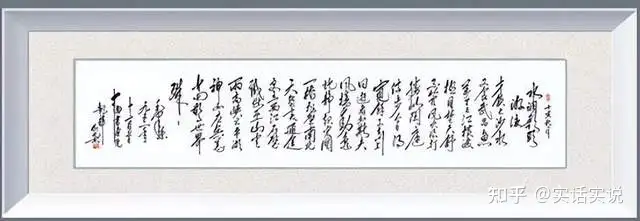 水调歌头
游泳
才饮长沙水
又食武昌鱼
万里长江横渡
极目楚天舒
不管风吹浪打
胜似闲庭
信步今日得
宽馀子在川上
曰逝者如斯夫
风樯动龟蛇
静起宏图
一桥飞架南北
天堑变通途
更立西江石壁
截断巫山云
雨高峡出平湖
神女应无恙
当惊世界
殊
知乎 @实话实说